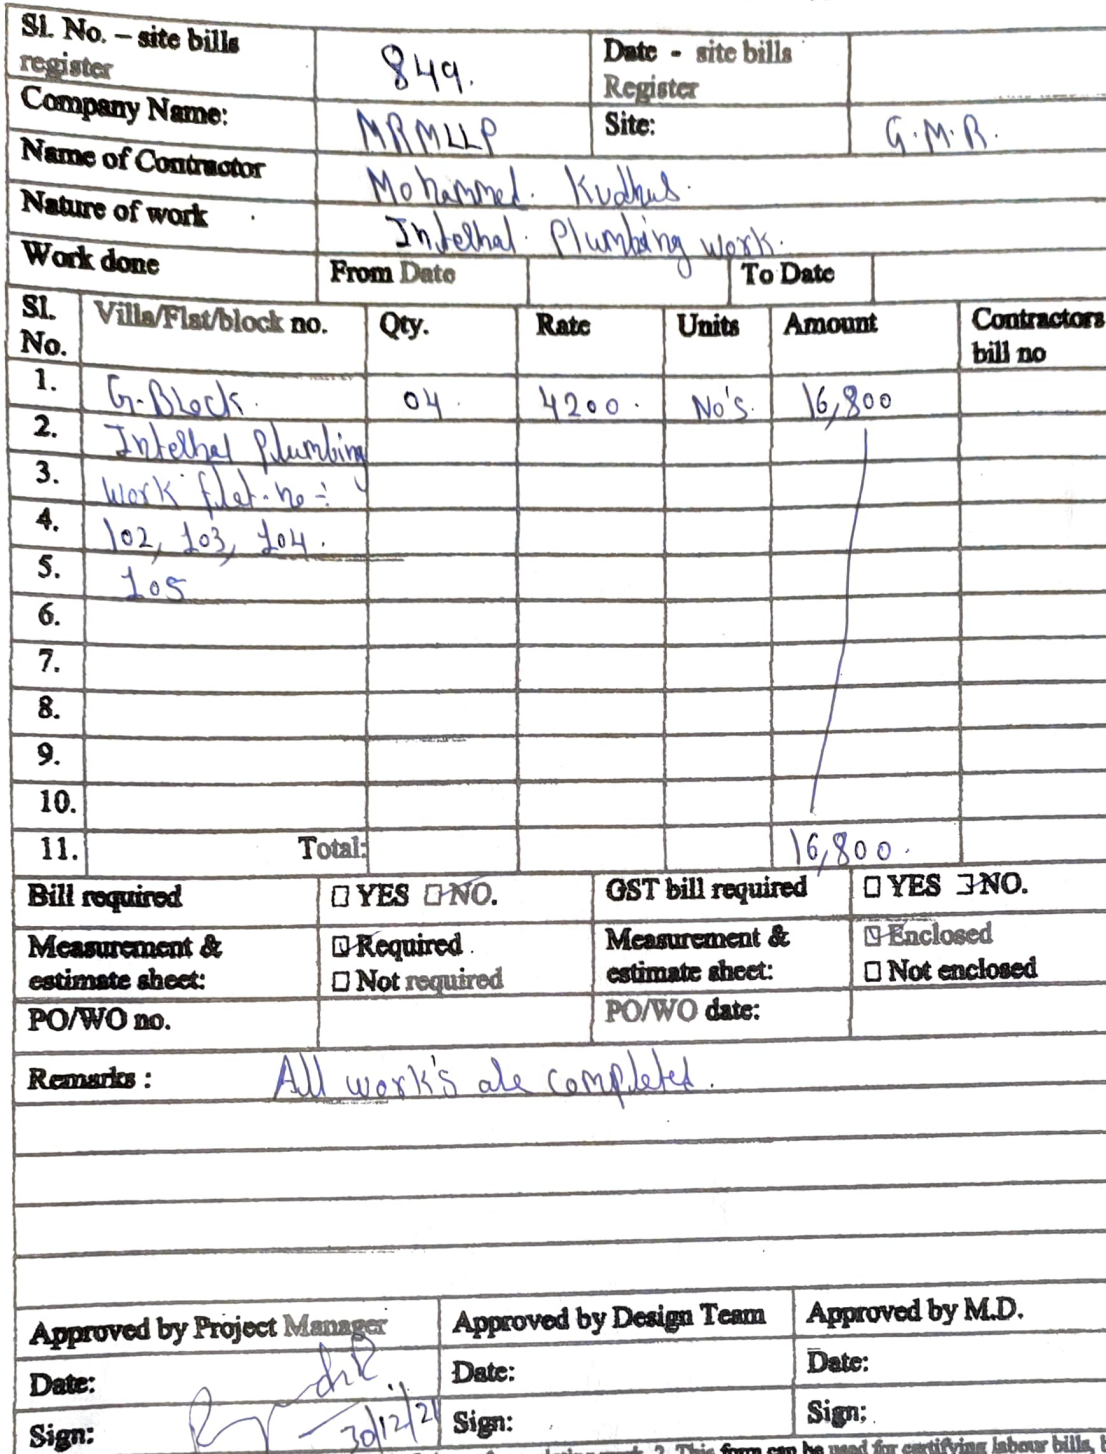 Sl. No. – site bills register 849. Date - site bills Register
Company Name: MRMLLP Site: G.M.R.
Name of Contractor Mohammed. Kudhus.
Nature of work Internal. Plumbing work.
Work done From Date To Date
Sl. No. Villa/Flat/block no. Qty. Rate Units Amount Contractors bill no
1. G-Block. 04. 4200. No's. 16,800
2. Internal Plumbing
3. work flat.no :
4. 102, 103, 104.
5. 105
6.
7.
8.
9.
10.
11. Total: 16,800.
Bill required ☐ YES ☐ NO. GST bill required ☐ YES ☐ NO.
Measurement & estimate sheet: ☐ Required ☐ Not required Measurement & estimate sheet: ☐ Enclosed ☐ Not enclosed
PO/WO no. PO/WO date:
Remarks : All work's are completed.
Approved by Project Manager Approved by Design Team Approved by M.D.
Date: Date: Date:
Sign: 30/12/21 Sign: Sign:
2. This form can be used for certifying labour bills,